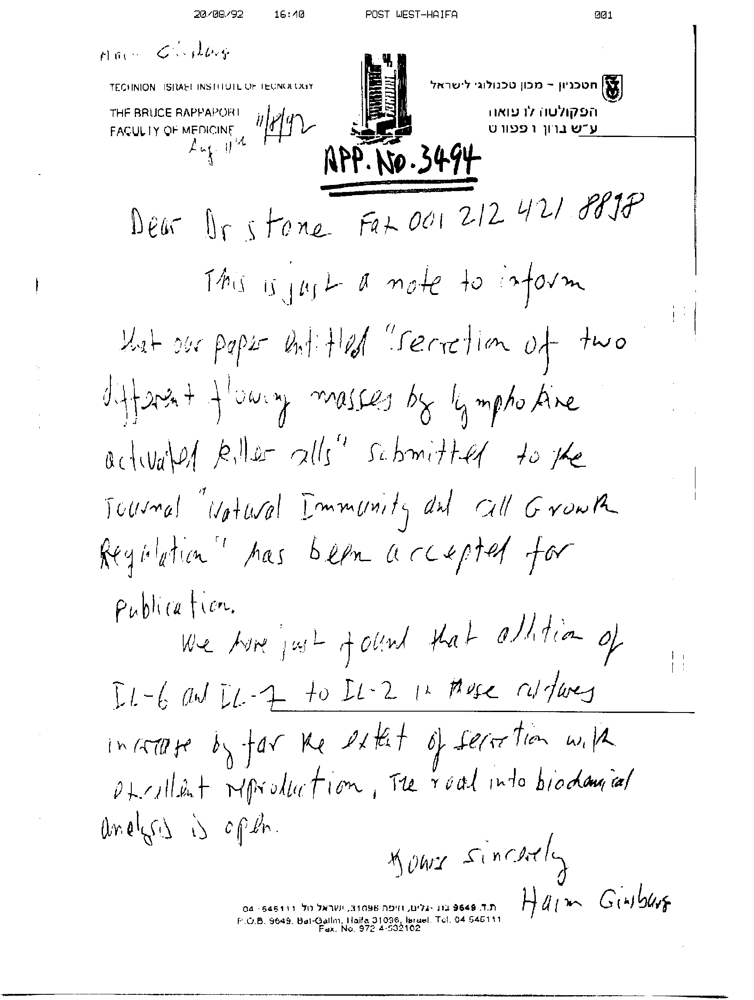 20/08/92 16:40 POST WEST-HAIFA 001
Haim Ginsburg
TECHNION ISRAEL INSTITUTE OF TECHNOLOGY
הטכניון - מכון טכנולוגי לישראל
THE BRUCE RAPPAPORT
FACULTY OF MEDICINE
הפקולטה לרפואה
ע״ש ברוך רפפורט
11/8/92
Aug 11th
APP. NO. 3494
Dear Dr stone Fax 001 212 421 8898
This is just a note to inform
that our paper entitled "secretion of two
different flowing masses by lymphokine
activated killer cells" submitted to the
Journal "Natural Immunity and Cell Growth
Regulation" has been accepted for
publication.
We have just found that addition of
IL-6 and IL-7 to IL-2 in these cultures
increase by far the extent of secretion with
excellent reproduction, The road into biochemical
analysis is open.
Yours sincerely
Haim Ginsburg
ת.ד. 9649 בת-גלים, חיפה 31096, ישראל טל 04-546111
P.O.B. 9649. Bat-Galim, Haifa 31096, Israel. Tel. 04 546111
Fax. No. 972 4-532102